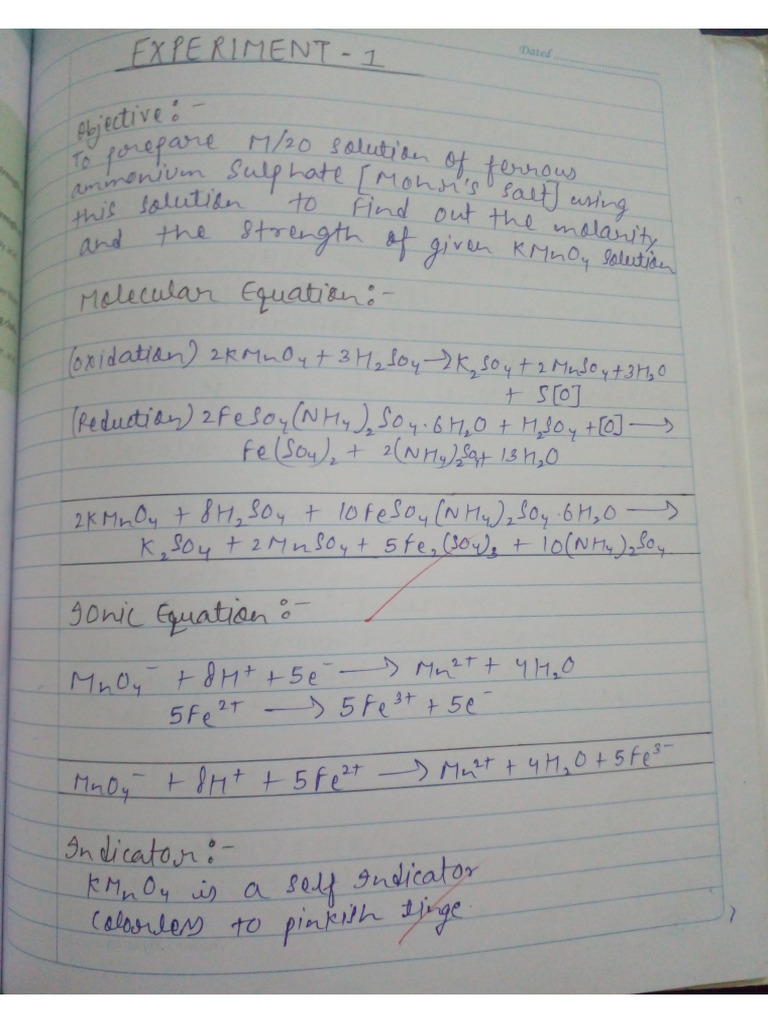 Dated
EXPERIMENT - 1
Objective:-
To prepare M/20 solution of ferrous
ammonium Sulphate [Mohr's Salt] using
this solution to find out the molarity
and the strength of given KMnO₄ solution
Molecular Equation:-
(Oxidation) 2KMnO₄ + 3H₂SO₄ → 2K₂SO₄ + 2MnSO₄ + 3H₂O
+ 5[O]
(Reduction) 2FeSO₄(NH₄)₂SO₄·6H₂O + H₂SO₄ + [O] →
Fe(SO₄)₂ + 2(NH₄)₂SO₄ + 13H₂O
2KMnO₄ + 8H₂SO₄ + 10FeSO₄(NH₄)₂SO₄·6H₂O →
K₂SO₄ + 2MnSO₄ + 5Fe₂(SO₄)₃ + 10(NH₄)₂SO₄
Ionic Equation:-
MnO₄⁻ + 8H⁺ + 5e⁻ → Mn²⁺ + 4H₂O
5Fe²⁺ → 5Fe³⁺ + 5e⁻
MnO₄⁻ + 8H⁺ + 5Fe²⁺ → Mn²⁺ + 4H₂O + 5Fe³⁻
Indicator:-
KMnO₄ is a self Indicator
Colorless to pinkish tinge